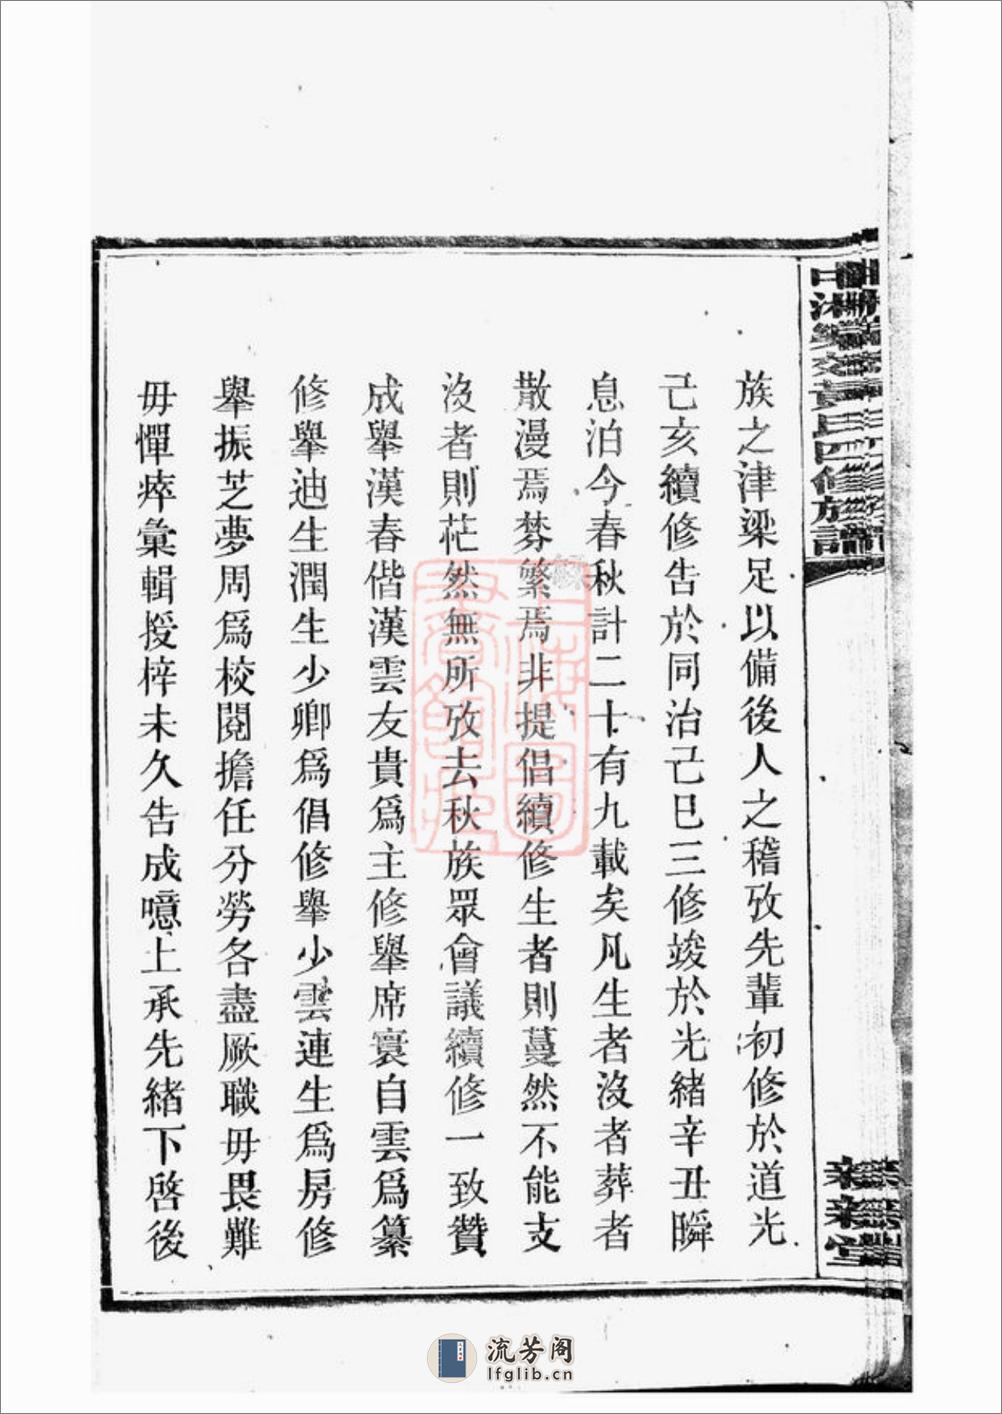 族之津梁足以備後人之稽攷先輩初修於道光
己亥續修告於同治己巳三修竣於光緒辛丑瞬
息泊今春秋計二十有九載矣凡生者沒者葬者
散漫焉棼繁焉非提倡續修生者則蔓然不能支
沒者則茫然無所攷去秋族眾會議續修一致贊
成舉漢春偕漢雲友貴爲主修舉席寰自雲爲纂
修舉迪生潤生少卿爲倡修舉少雲連生爲房修
舉振芝夢周爲校閱擔任分勞各盡厥職毋畏難
毋憚瘁彙輯授梓未久告成噫上承先緒下啓後
上海圖書館藏
流芳阁
lfglib.cn